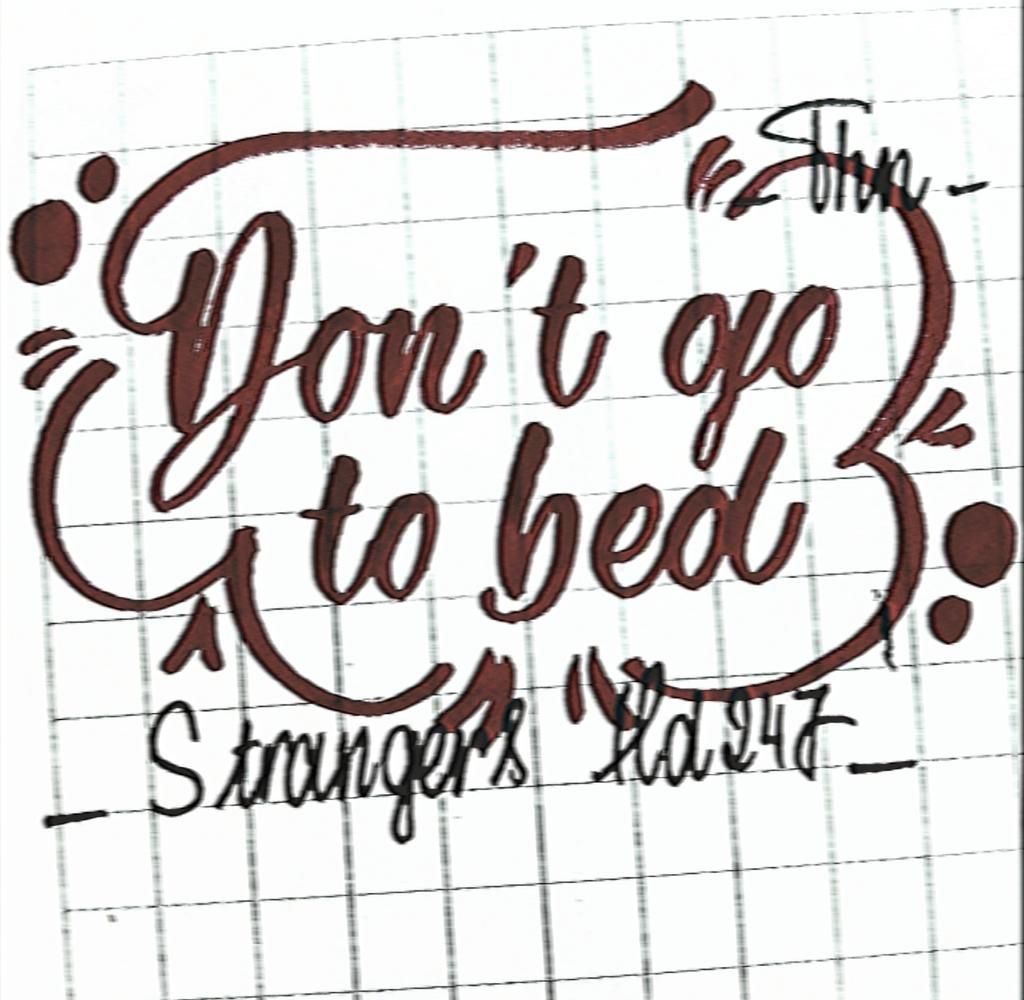 Don't go
to bed
Strangers Hd247